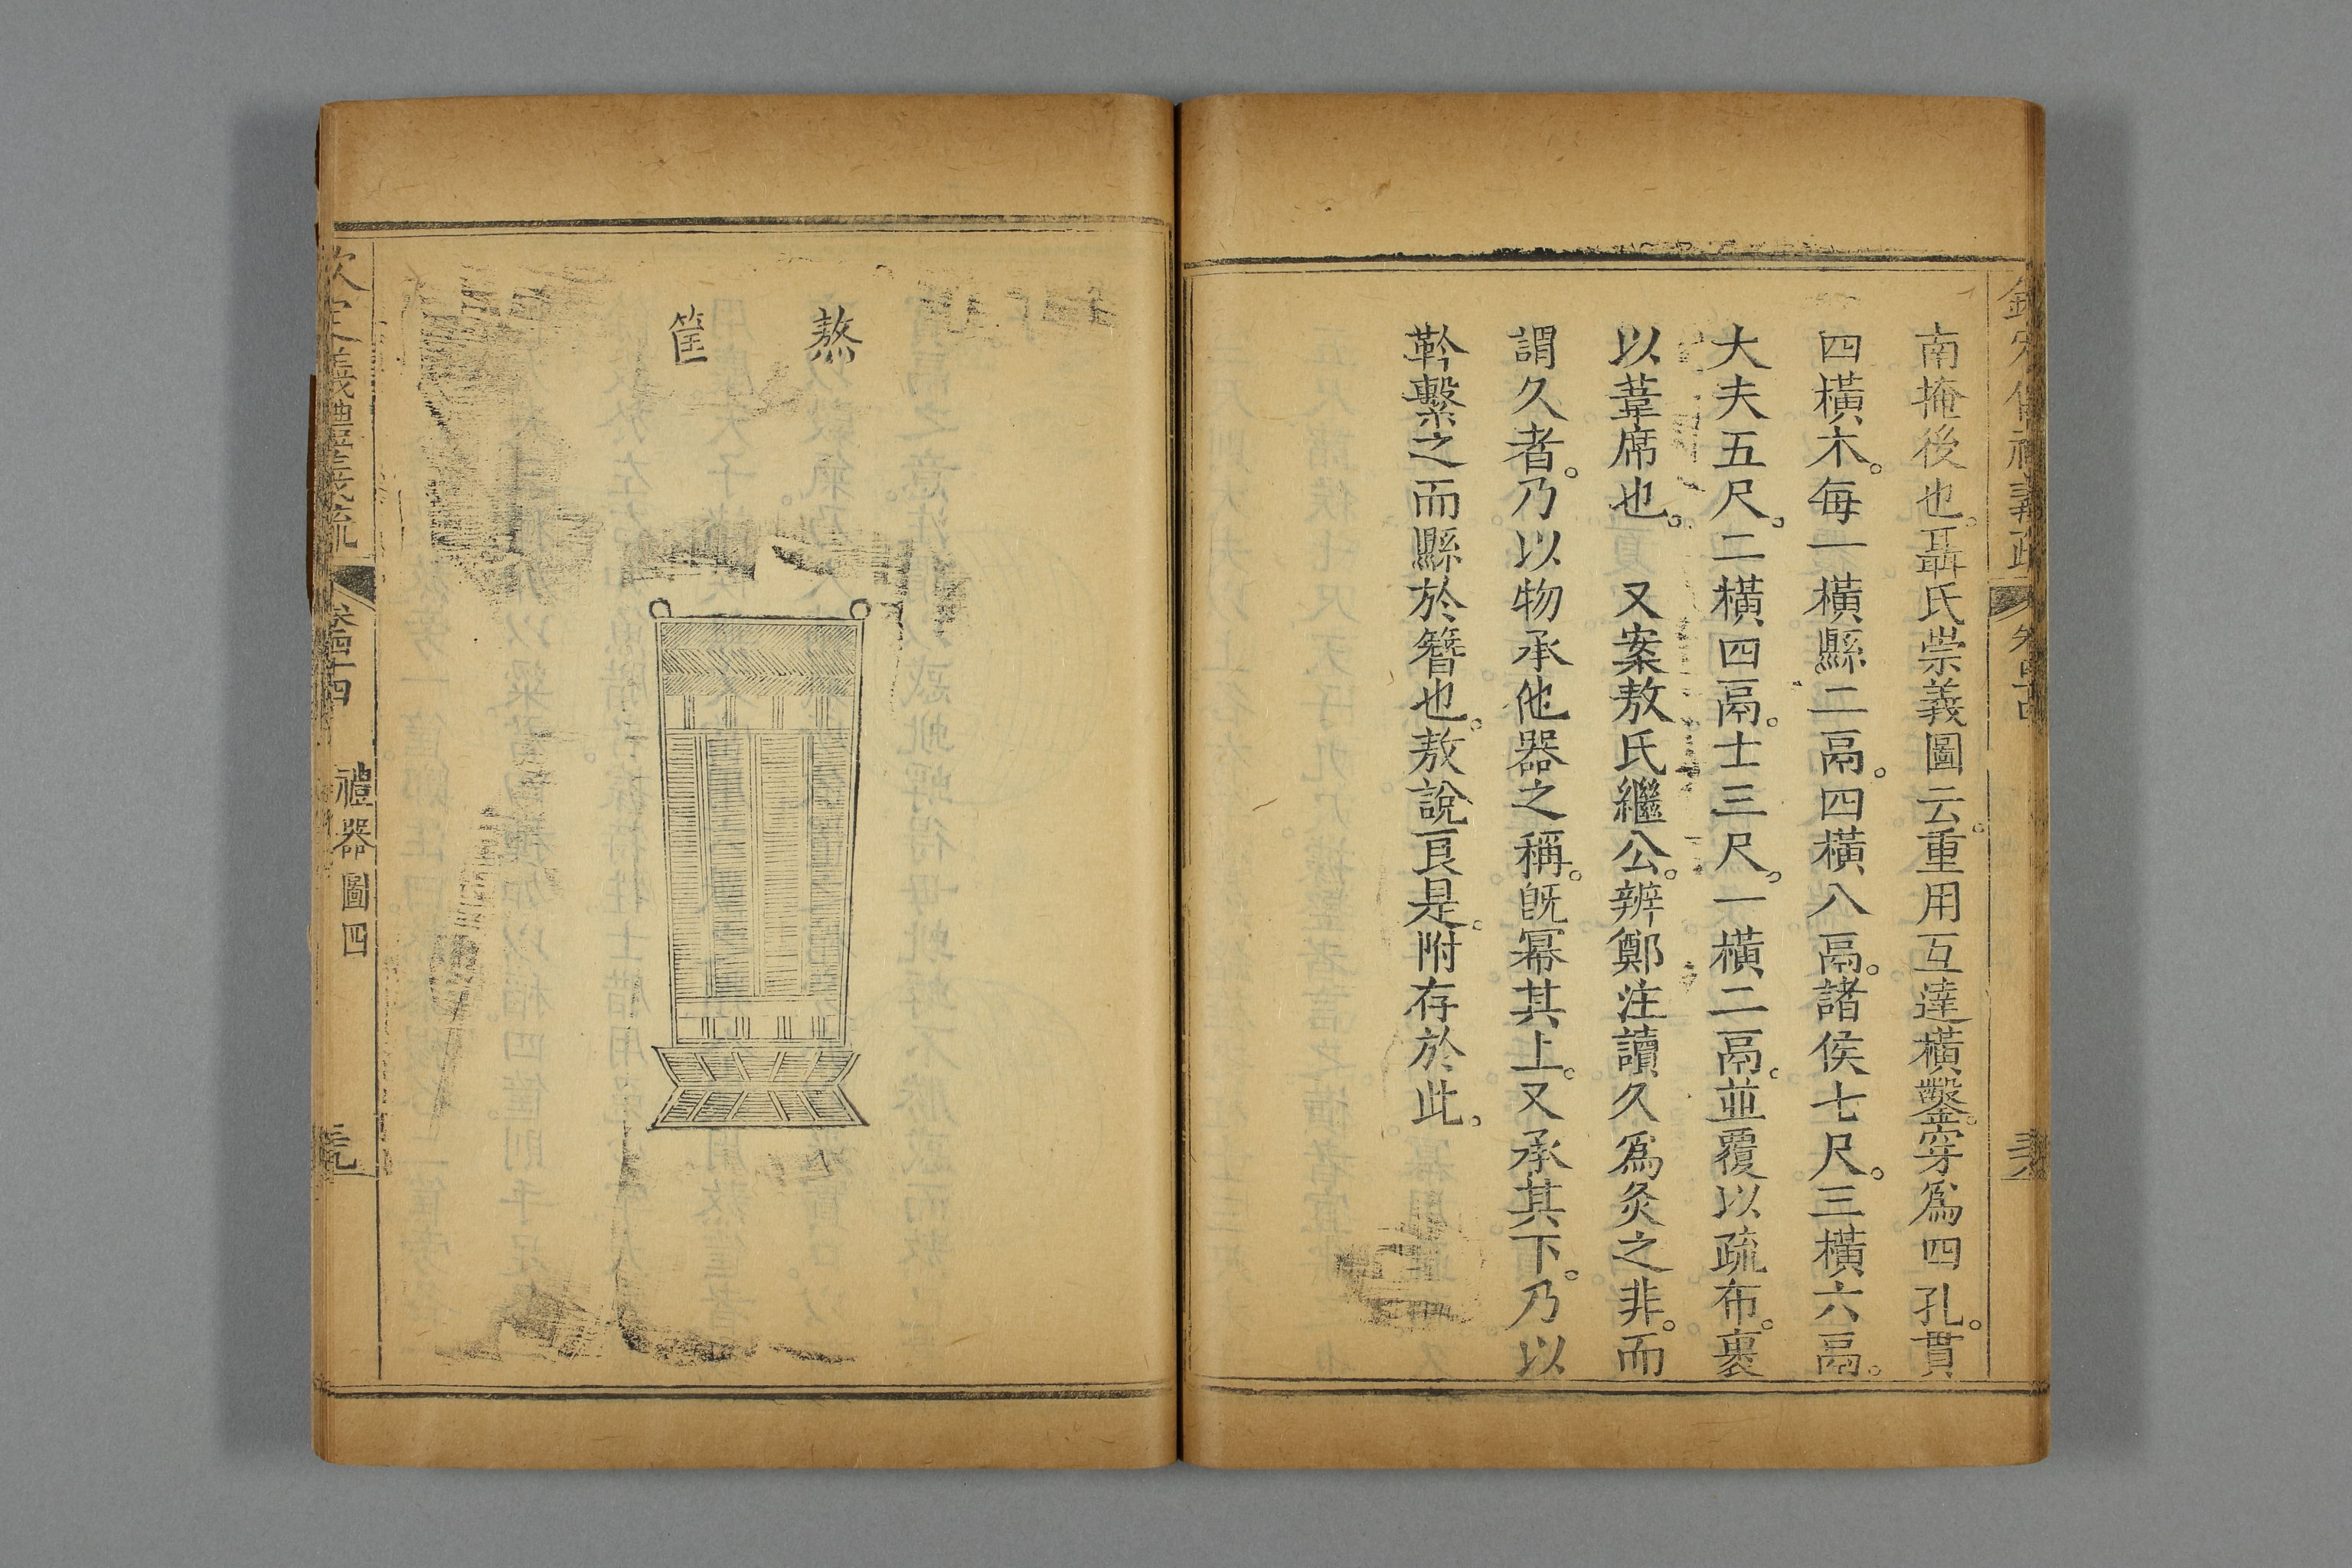 南掩後也。聶氏崇義圖云。重用互達橫鑿。穿爲四孔。貫
四橫木。每一橫縣二鬲。四橫八鬲。諸侯七尺。三橫六鬲。
大夫五尺。二橫四鬲。士三尺。一橫二鬲。並覆以疏布。裹
以葦席也。　又案敖氏繼公。辨鄭注讀久爲灸之非。而
謂久者。乃以物承他器之稱。旣冪其上。又承其下。乃以
靲繫之而縣於簪也。敖說良是。附存於此。
熬
筐
欽定義禮義疏 卷四十四 禮器圖四